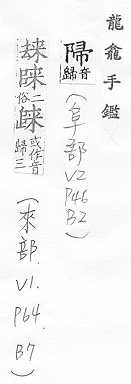 龍龕手鑑
音歸
(阜部
V2
P46
B2)
二俗
或作音
歸三
(來部.
V1.
P64.
B7)